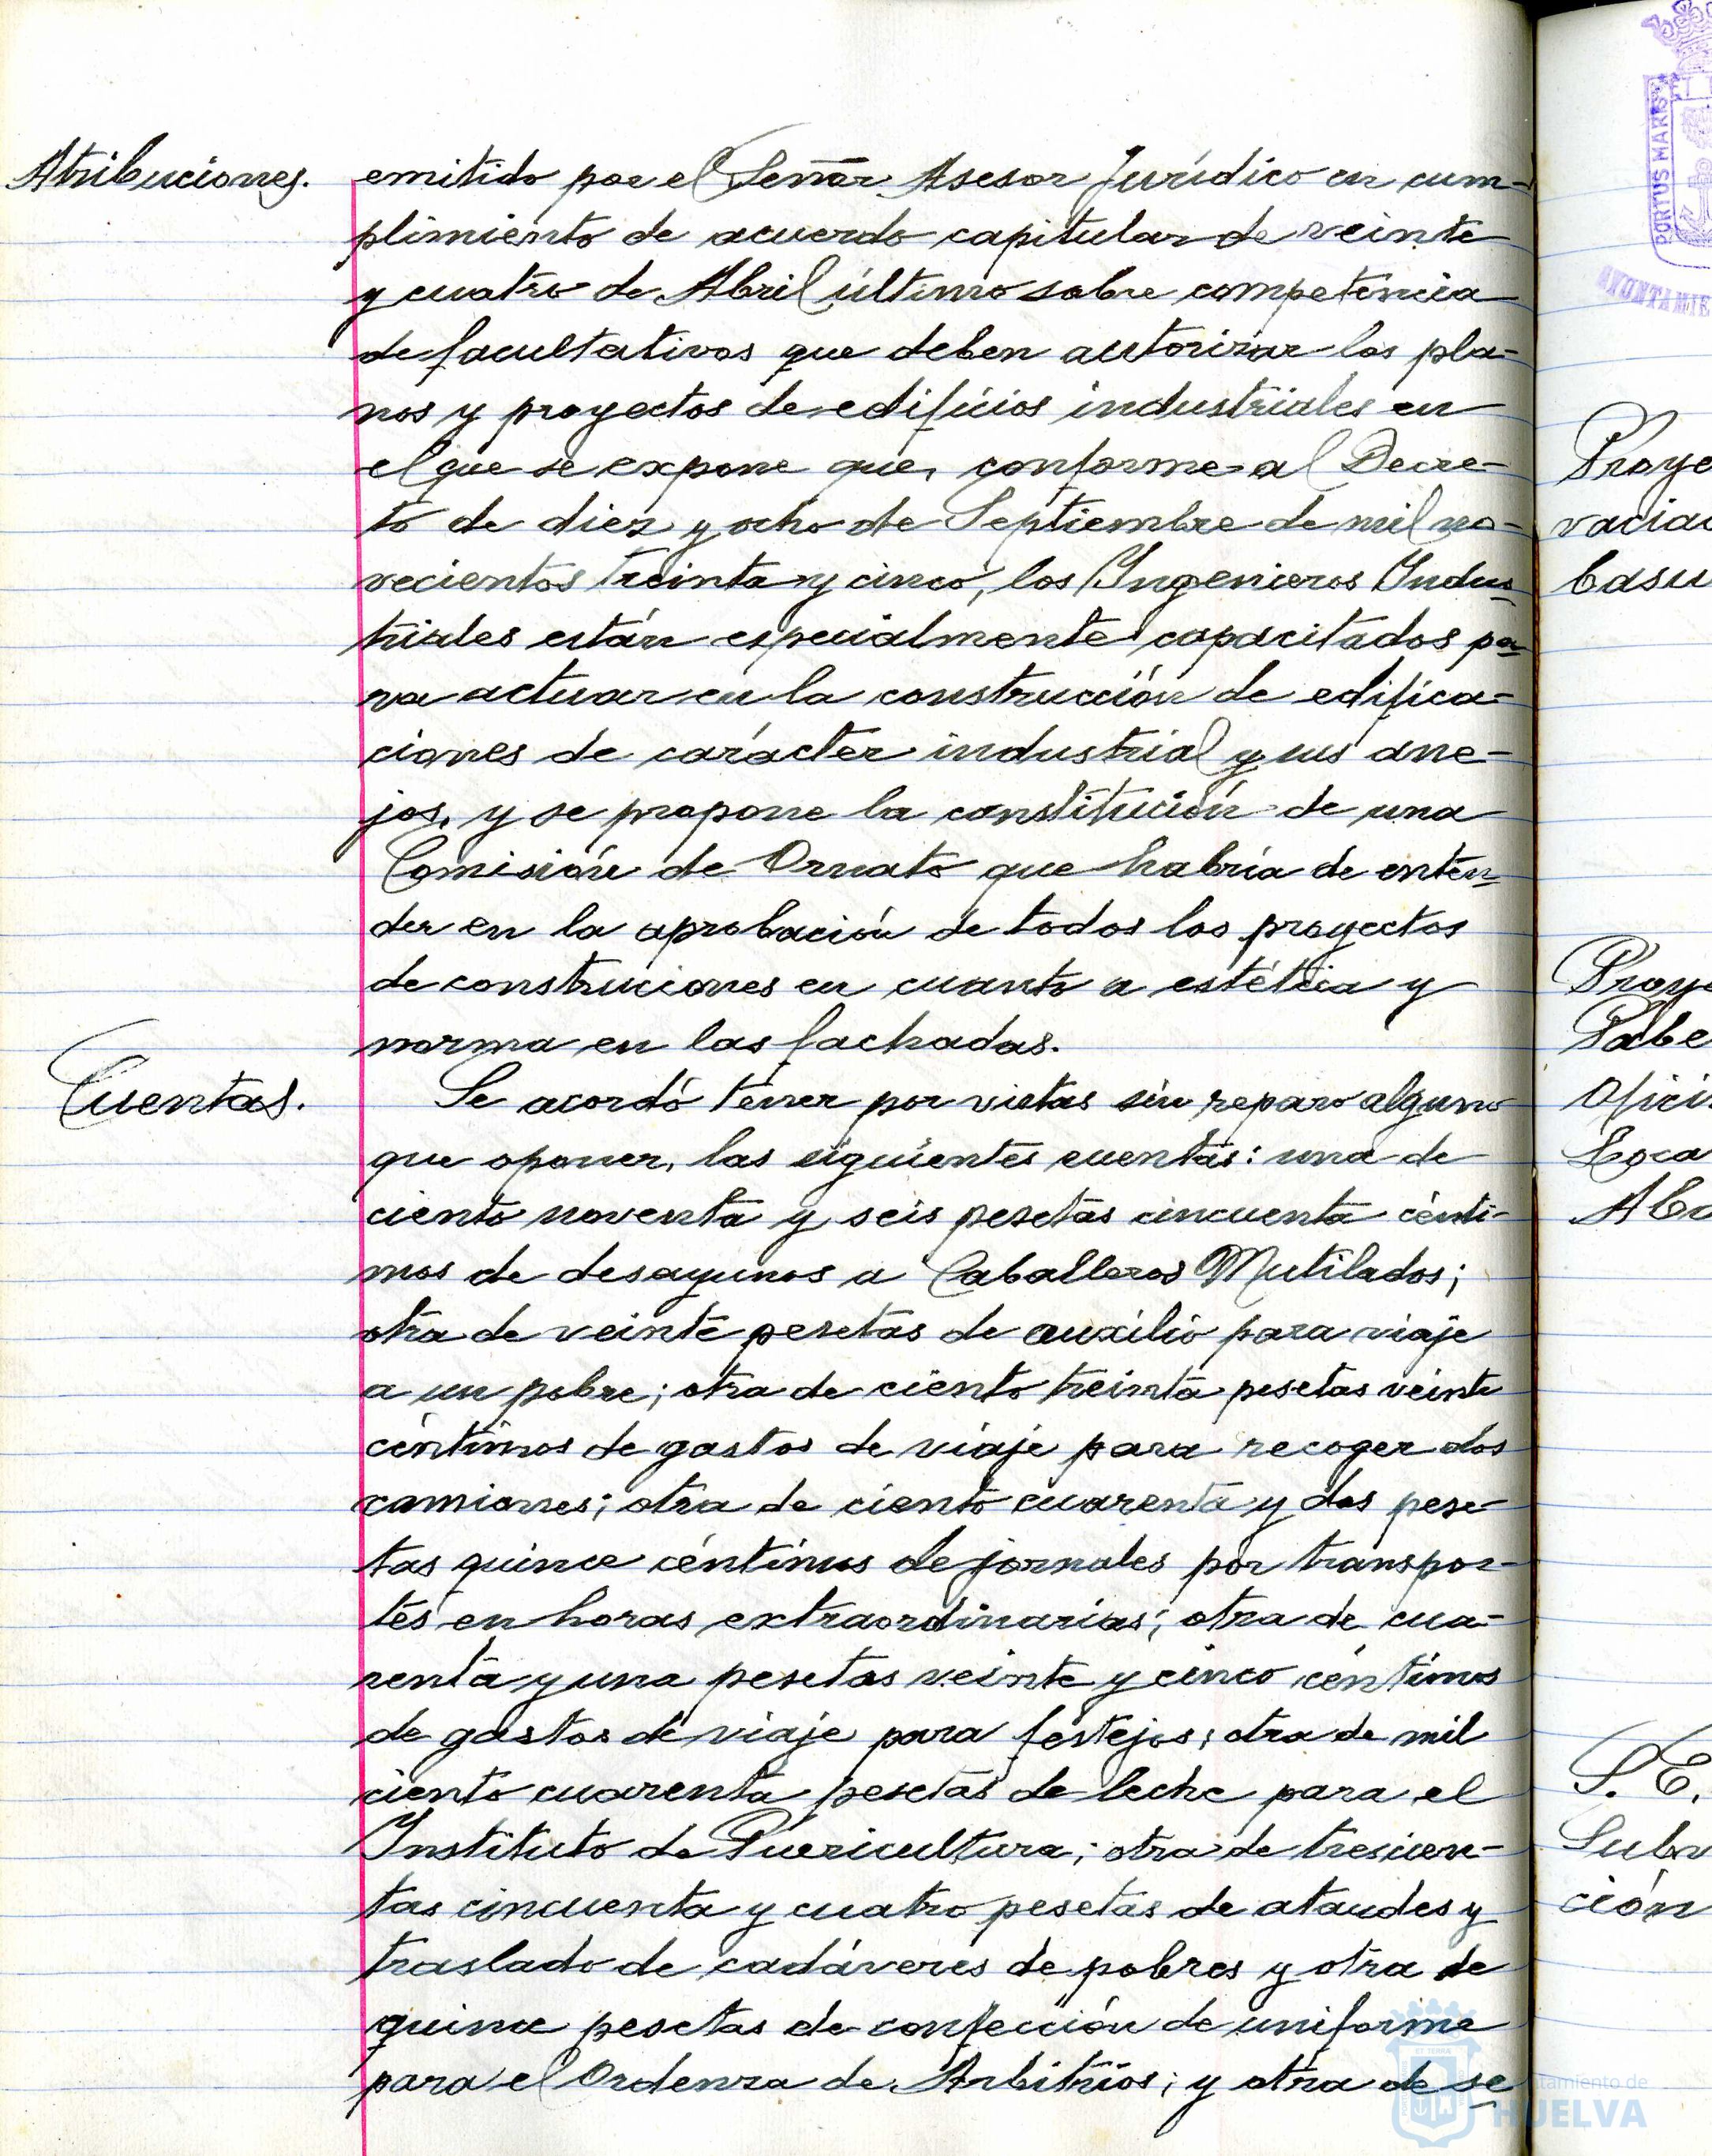 Atribuciones.
emitido por el Señor Asesor Jurídico en cum-
plimiento de acuerdo capitular de veinte
y cuatro de Abril último sobre competencia
de facultativos que deben autorizar los pla-
nos y proyectos de edificios industriales en
el que se expone que, conforme al Decre-
to de diez y ocho de Septiembre de mil no-
vecientos treinta y cinco, los Ingenieros Indus-
triales están especialmente capacitados pa-
ra actuar en la construcción de edifica-
ciones de carácter industrial y sus ane-
jos, y se propone la constitución de una
Comisión de Ornato que habría de enten-
der en la aprobación de todos los proyectos
de construciones en cuanto a estética y
norma en las fachadas.
Cuentas.
Se acordó tener por vistas sin reparo alguno
que oponer, las siguientes cuentas: una de
ciento noventa y seis pesetas cincuenta cénti-
mos de desayunos a Caballeros Mutilados;
otra de veinte pesetas de auxilio para viaje
a un pobre; otra de ciento treinta pesetas veinte
céntimos de gastos de viaje para recoger dos
camiones; otra de ciento cuarenta y dos pese-
tas quince céntimos de jornales por transpor-
tes en horas extraordinarias; otra de cua-
renta y una pesetas veinte y cinco céntimos
de gastos de viaje para festejos; otra de mil
ciento cuarenta pesetas de leche para el
Instituto de Puericultura; otra de trescien-
tas cincuenta y cuatro pesetas de ataudes y
traslado de cadáveres de pobres y otra de
quince pesetas de confección de uniforme
para el Ordenza de Arbitrios; y otra de se
PORTUS MARIS
AYUNTAMIE
Proye
vaciad
basu
Proye
Pabe
Ofici
Loca
Aba
S. E.
Subv
ción
tamiento de
HUELVA